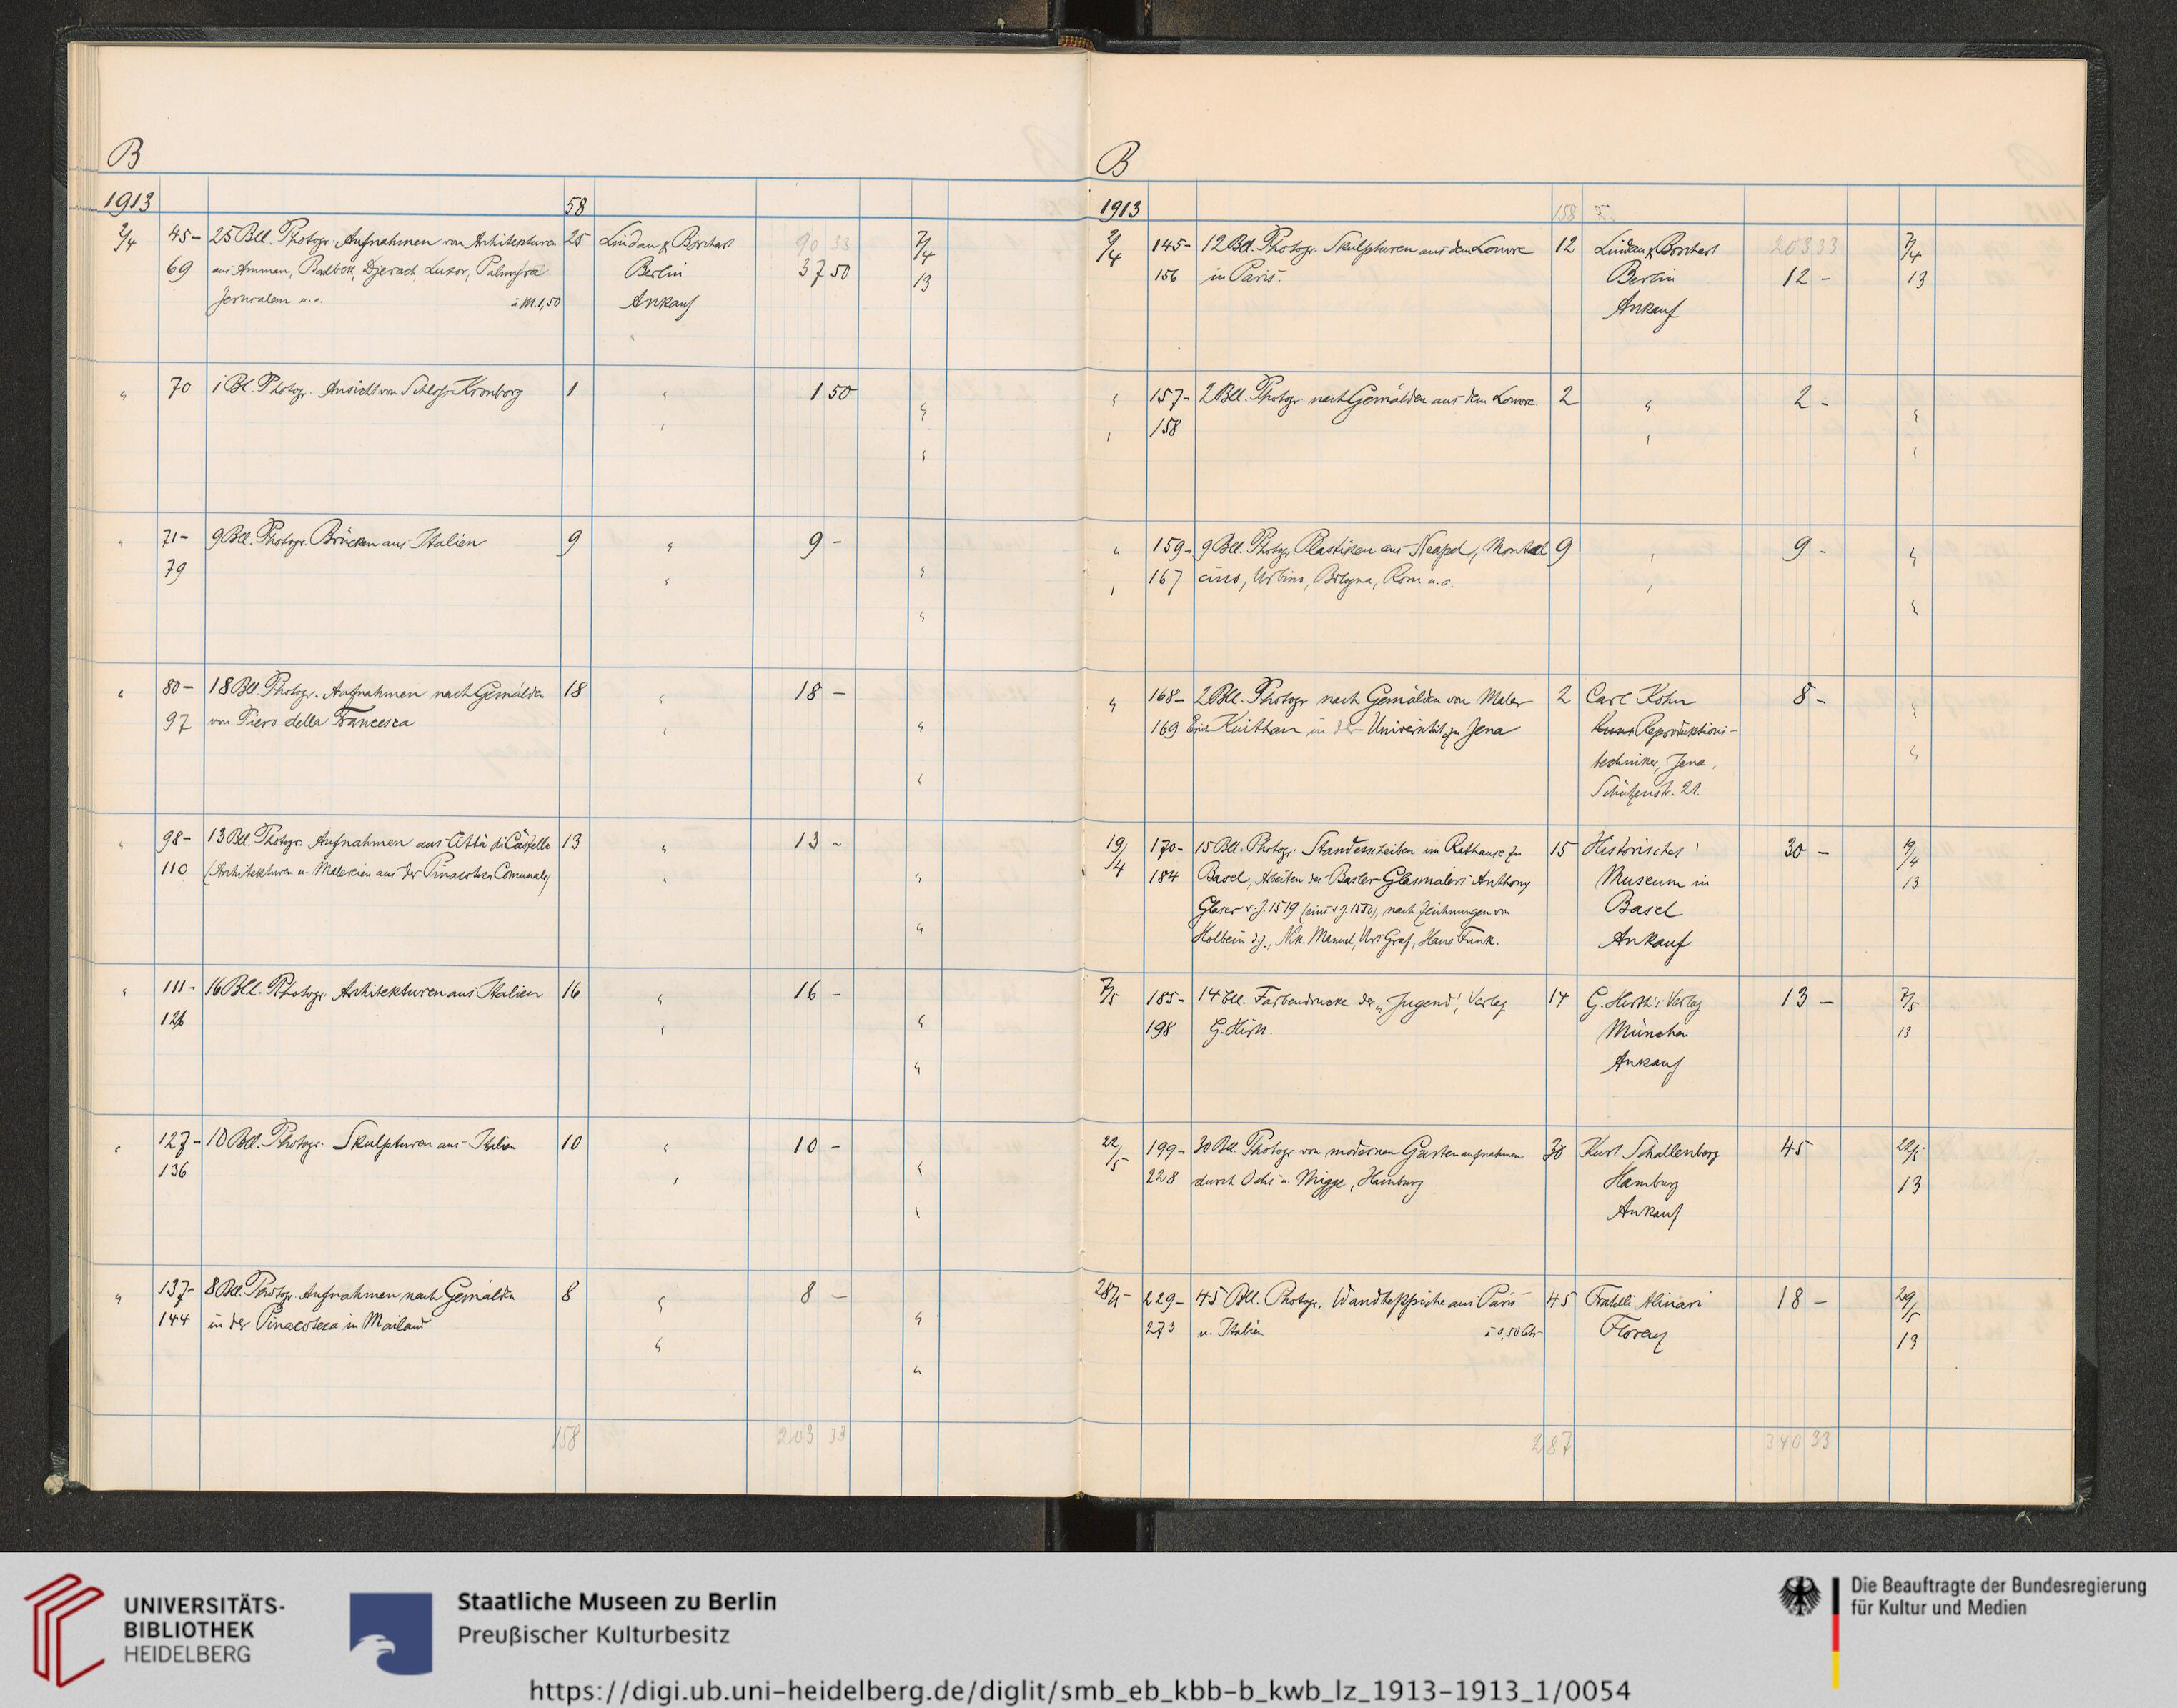 B
1913 58
2/4 45- 25 Bll. Photogr. Aufnahmen von Architekturen 25 Lindau & Borchert 90 33 7/4
69 aus Amman, Baalbek, Djerach, Luxor, Palmyra Berlin 37 50 13
Jerusalem u.a. à M. 1,50 Ankauf
" 70 1 Bl. Photogr. Ansicht von Schloss Kronborg 1 " 1 50 "
" 71- 9 Bll. Photogr. Brücken aus Italien 9 " 9 -
79 " "
" 80- 18 Bll. Photogr. Aufnahmen nach Gemälden 18 " 18 -
97 von Piero della Francesca " "
" 98- 13 Bll. Photogr. Aufnahmen aus Città di Castello 13 " 13 -
110 (Architekturen u. Malereien aus der Pinacoteca Comunale) " "
" 111- 16 Bll. Photogr. Architekturen aus Italien 16 " 16 -
126 " "
" 127- 10 Bll. Photogr. Skulpturen aus Italien 10 " 10 -
136 " "
" 137- 8 Bll. Photogr. Aufnahmen nach Gemälden 8 " 8 -
144 in der Pinacoteca in Mailand " "
158 203 33
B
1913 158
2/4 145- 12 Bll. Photogr. Skulpturen aus dem Louvre 12 Lindau & Borchert 203 33 7/4
156 in Paris. Berlin 12 - 13
Ankauf
" 157- 2 Bll. Photogr. nach Gemälden aus dem Louvre. 2 " 2 - "
" 158 " "
" 159- 9 Bll. Photogr. Plastiken aus Neapel, Montal 9 " 9 - "
" 167 cino, Urbino, Bologna, Rom u.a. " "
" 168- 2 Bll. Photogr. nach Gemälden von Maler 2 Carl Kohn 8 - "
169 Erich Kuithan in der Universität zu Jena Reproduktions- "
techniker, Jena,
Schützenstr. 21.
19/4 170- 15 Bll. Photogr. Standesscheiben im Rathause zu 15 Historisches 30 - 19/4
184 Basel, Arbeiten des Basler Glasmalers Anthony Museum in 13
Glaser v. J. 1519 (eins v. J. 1550), nach Zeichnungen von Basel
Holbein d. J., Nik. Manuel, Urs Graf, Hans Funk. Ankauf
7/5 185- 14 Bll. Farbendrucke der „Jugend", Verlag 14 G. Hirth's Verlag 13 - 7/5
198 G. Hirth. München 13
Ankauf
22/5 199- 30 Bll. Photogr. von modernen Gartenaufnahmen 30 Kurt Schallenberg 45 22/5
228 durch Ochs u. Migge, Hamburg Hamburg 13
Ankauf
28/5 229- 45 Bll. Photogr. Wandteppiche aus Paris 45 Fratelli Alinari 18 - 29/5
273 u. Italien à 0,50 Ctr Florenz 13
287 340 33
UNIVERSITÄTS-
BIBLIOTHEK
HEIDELBERG
Staatliche Museen zu Berlin
Preußischer Kulturbesitz
Die Beauftragte der Bundesregierung
für Kultur und Medien
https://digi.ub.uni-heidelberg.de/diglit/smb_eb_kbb-b_kwb_lz_1913-1913_1/0054